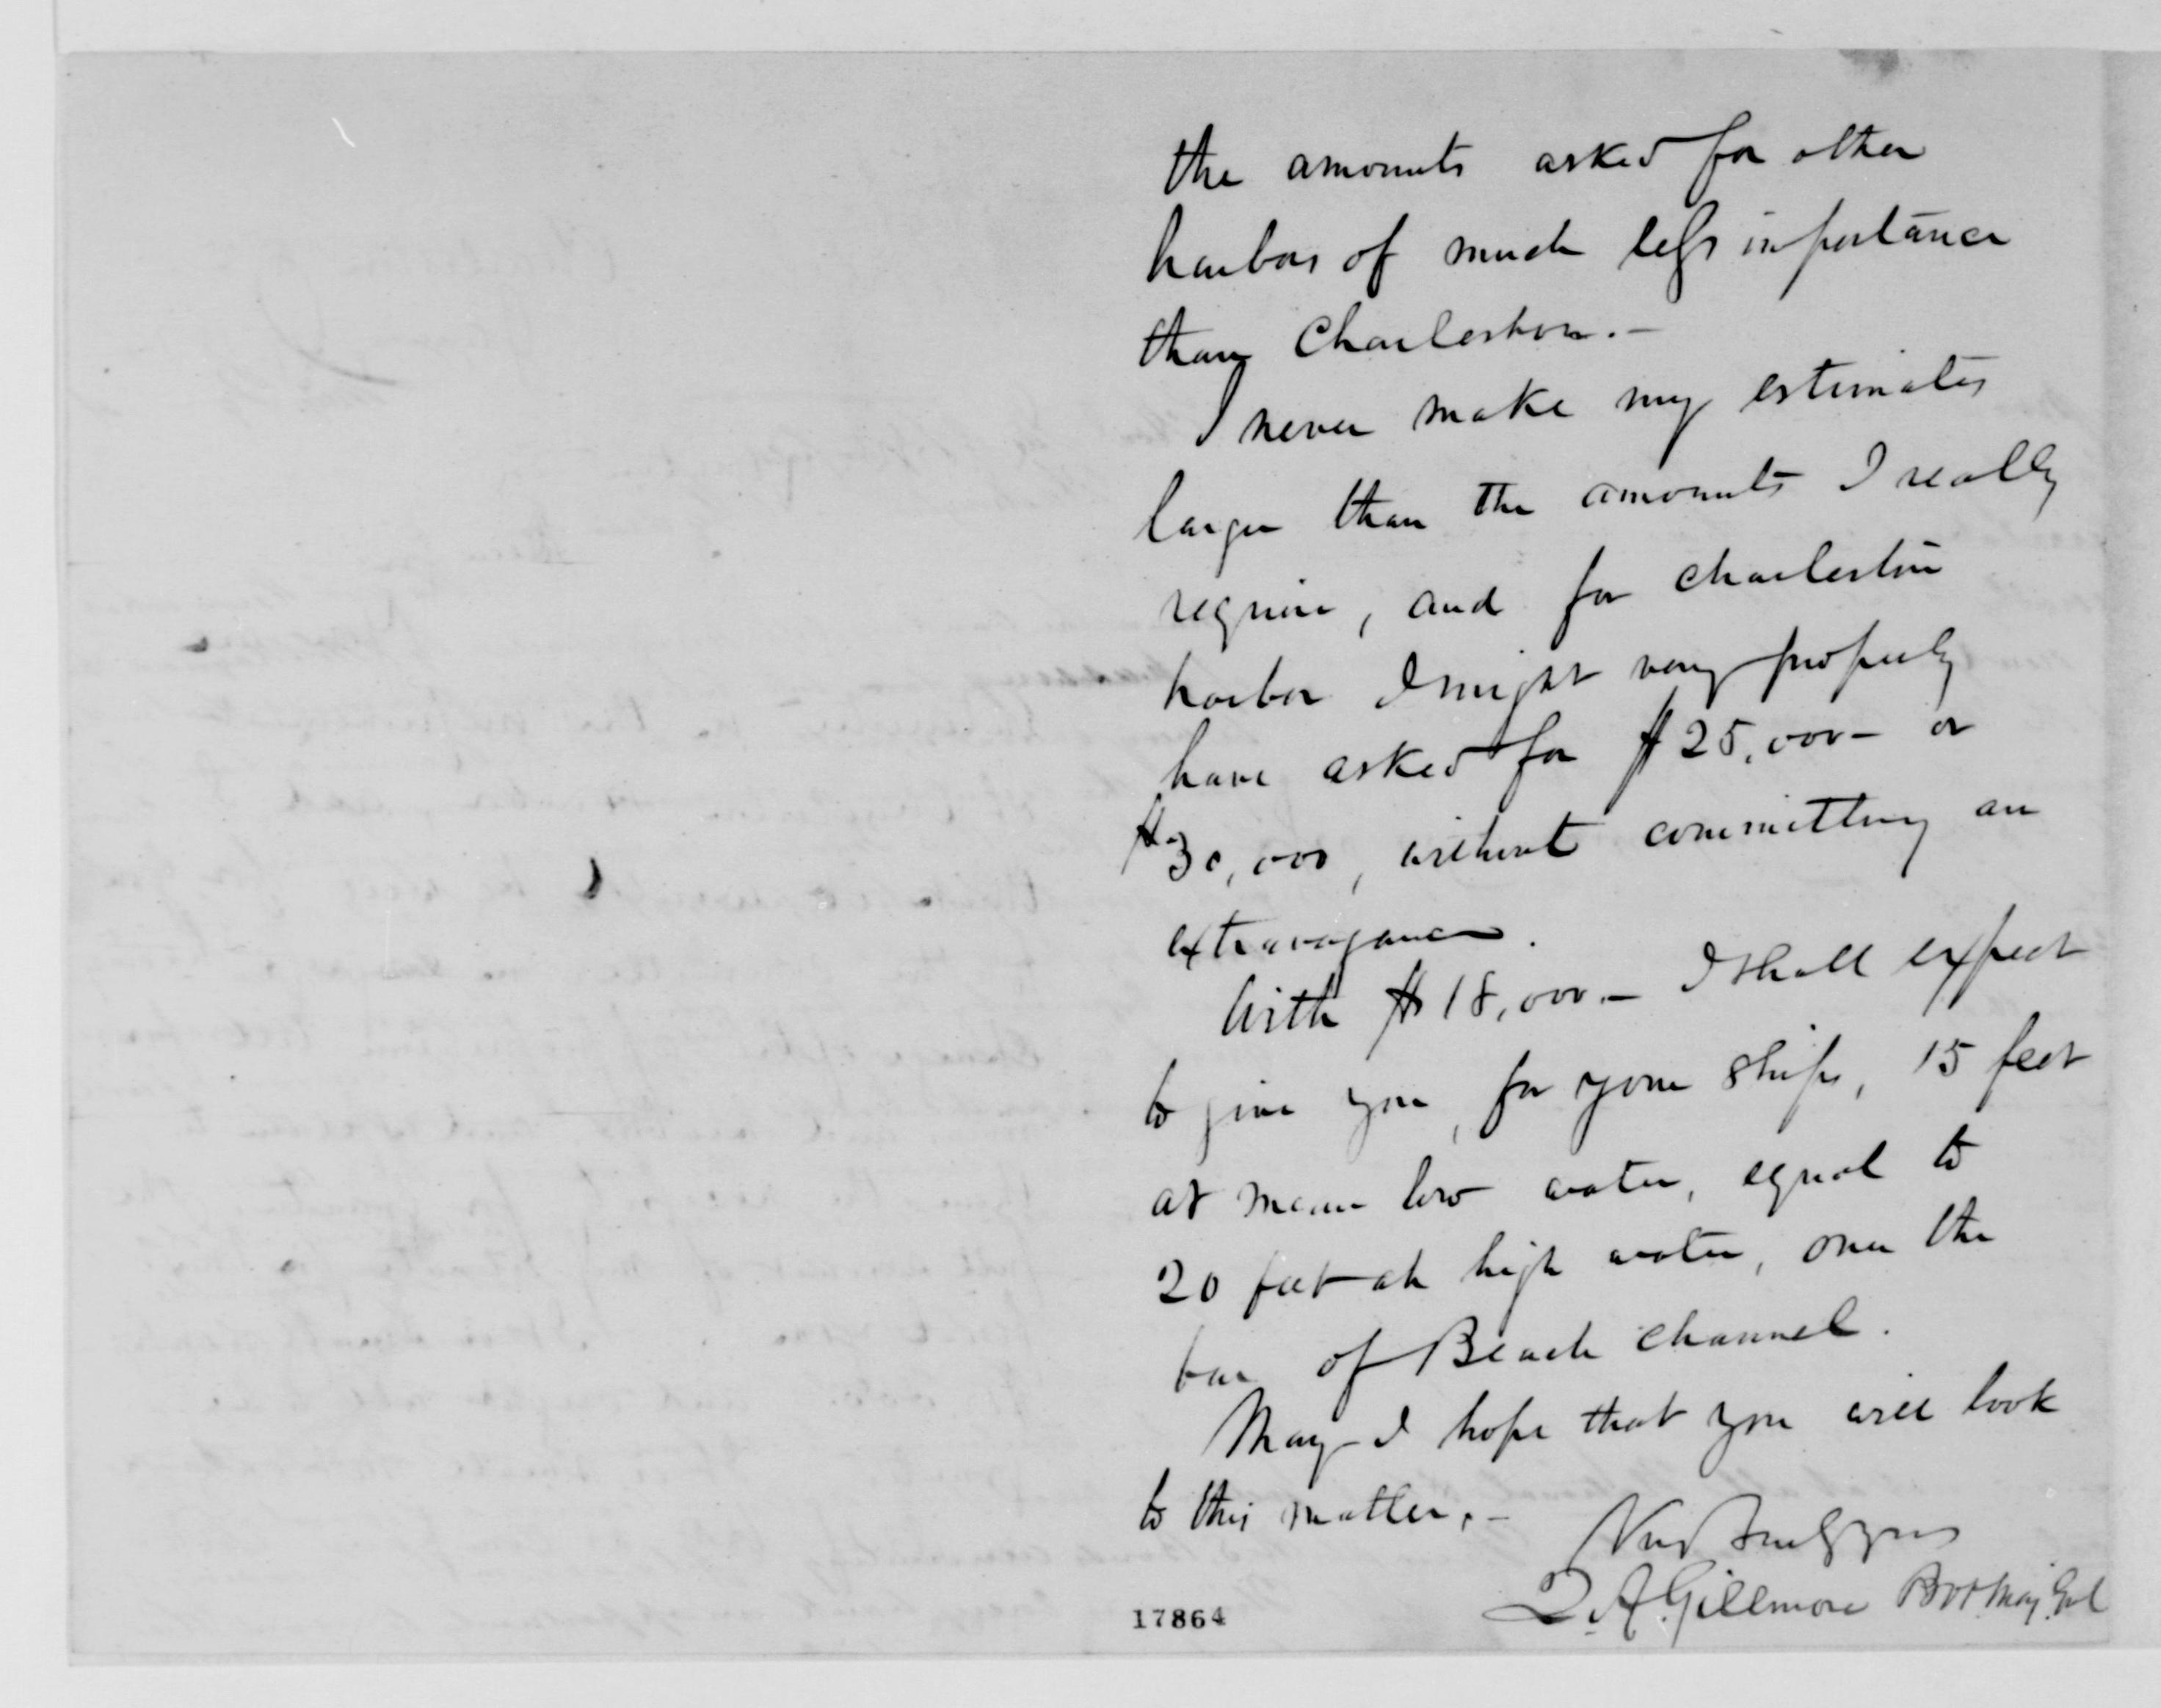 the amounts asked for other
harbors of much less importance
than Charleston.—
I never make my estimates
larger than the amounts I really
require, and for Charleston
harbor I might very properly
have asked for $25,000— or
$30,000, without committing an
extravagance.
With $18,000.— I shall expect
to give you, for your ships, 15 feet
at mean low water, equal to
20 feet at high water, over the
bar of Beach channel.
May I hope that you will look
to this matter.—
Very Truly Yours
Q. A. Gillmore Bvt. Maj. Genl
17864